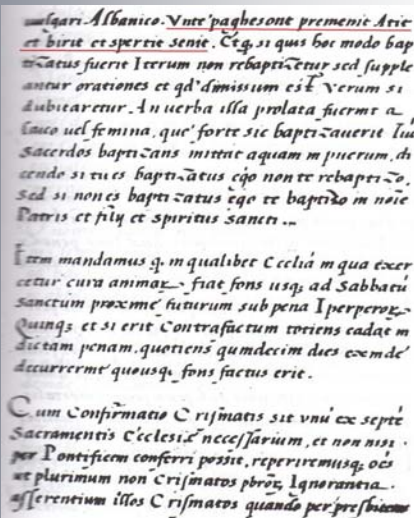 uulgari Albanico. Vnte paghesont premenit Atit
et birit et spertit senit. Etq, si quis hoc modo bap
tizatus fuerit Iterum non rebaptizetur sed supple
antur orationes et qd' dimissum est. Verum si
dubitaretur. An uerba illa prolata fuerint a
Laico uel femina, que' forte sic baptizauerit Tūc
Sacerdos baptizans mittat aquam in puerum, di
cendo si tu es baptizatus ego non te rebaptizo.
Sed si non es baptizatus ego te baptizo in noīe
Patris et filij et Spiritus Sancti ...
Item mandamus q. in qualibet Ecclīa in qua exer
cetur cura animar. fiat fons usq; ad Sabbatū
Sanctum proxime futurum sub pena Iperperor.
Quinq; et si erit Contrafactum totiens cadat in
dictam penam, quotiens quindecim dies exinde
decurrerint quousq; fons factus erit.
Cum Confirmatio Crismatis sit unū ex septē
Sacramentis Ecclesiæ necessarium, et non nisi
per Pontificem conferri possit, reperiremusq; oēs
ut plurimum non Crismatos pbrōr, Ignorantia
asserentium illos Crismatos quando per presbiteros